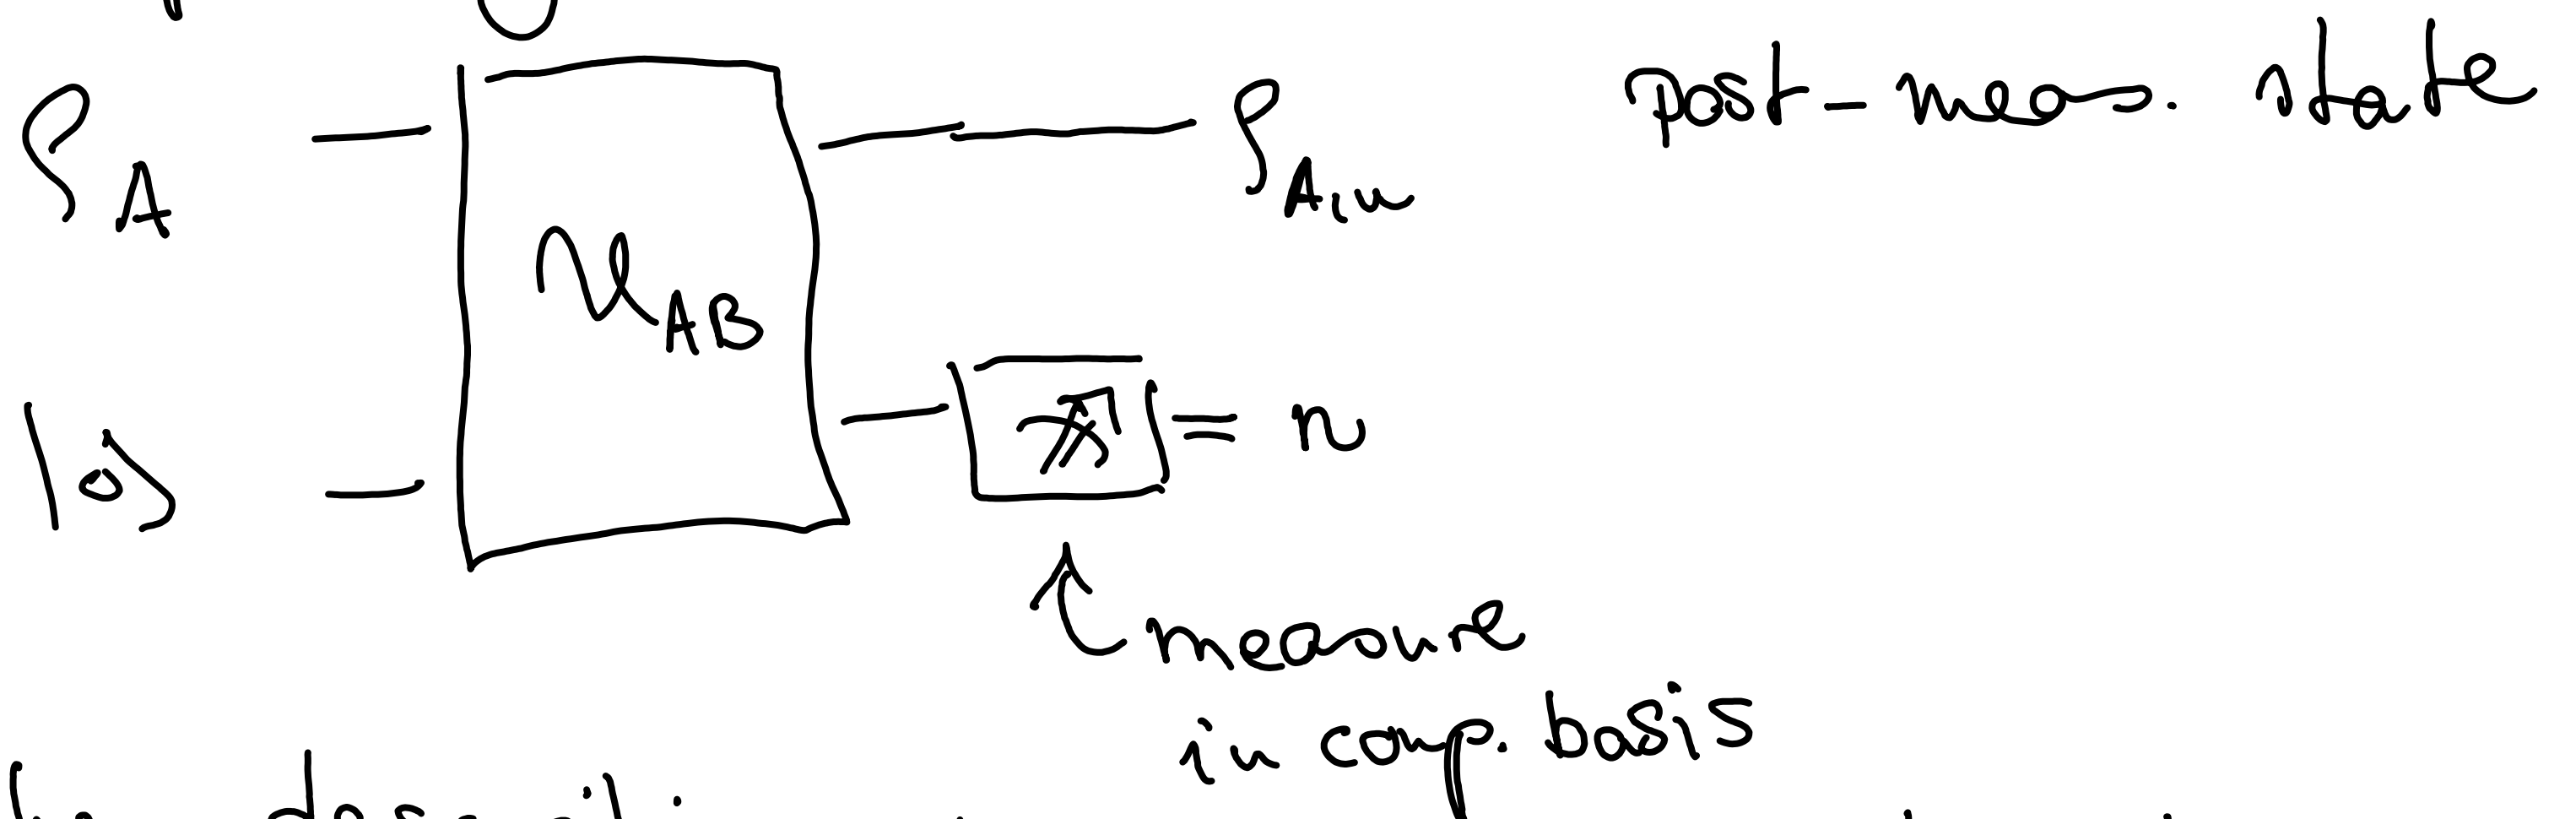 ρ_A U_AB ρ_A,n post-meas. state
|0⟩ = n
measure
in comp. basis